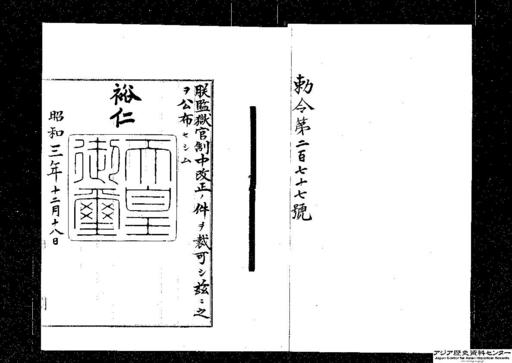 勅令第二百七十七號
朕監獄官制中改正ノ件ヲ裁可シ玆ニ之
ヲ公布セシム
裕仁
天皇
御璽
昭和三年十二月十八日
アジア歴史資料センター
Japan Center for Asian Historical Records